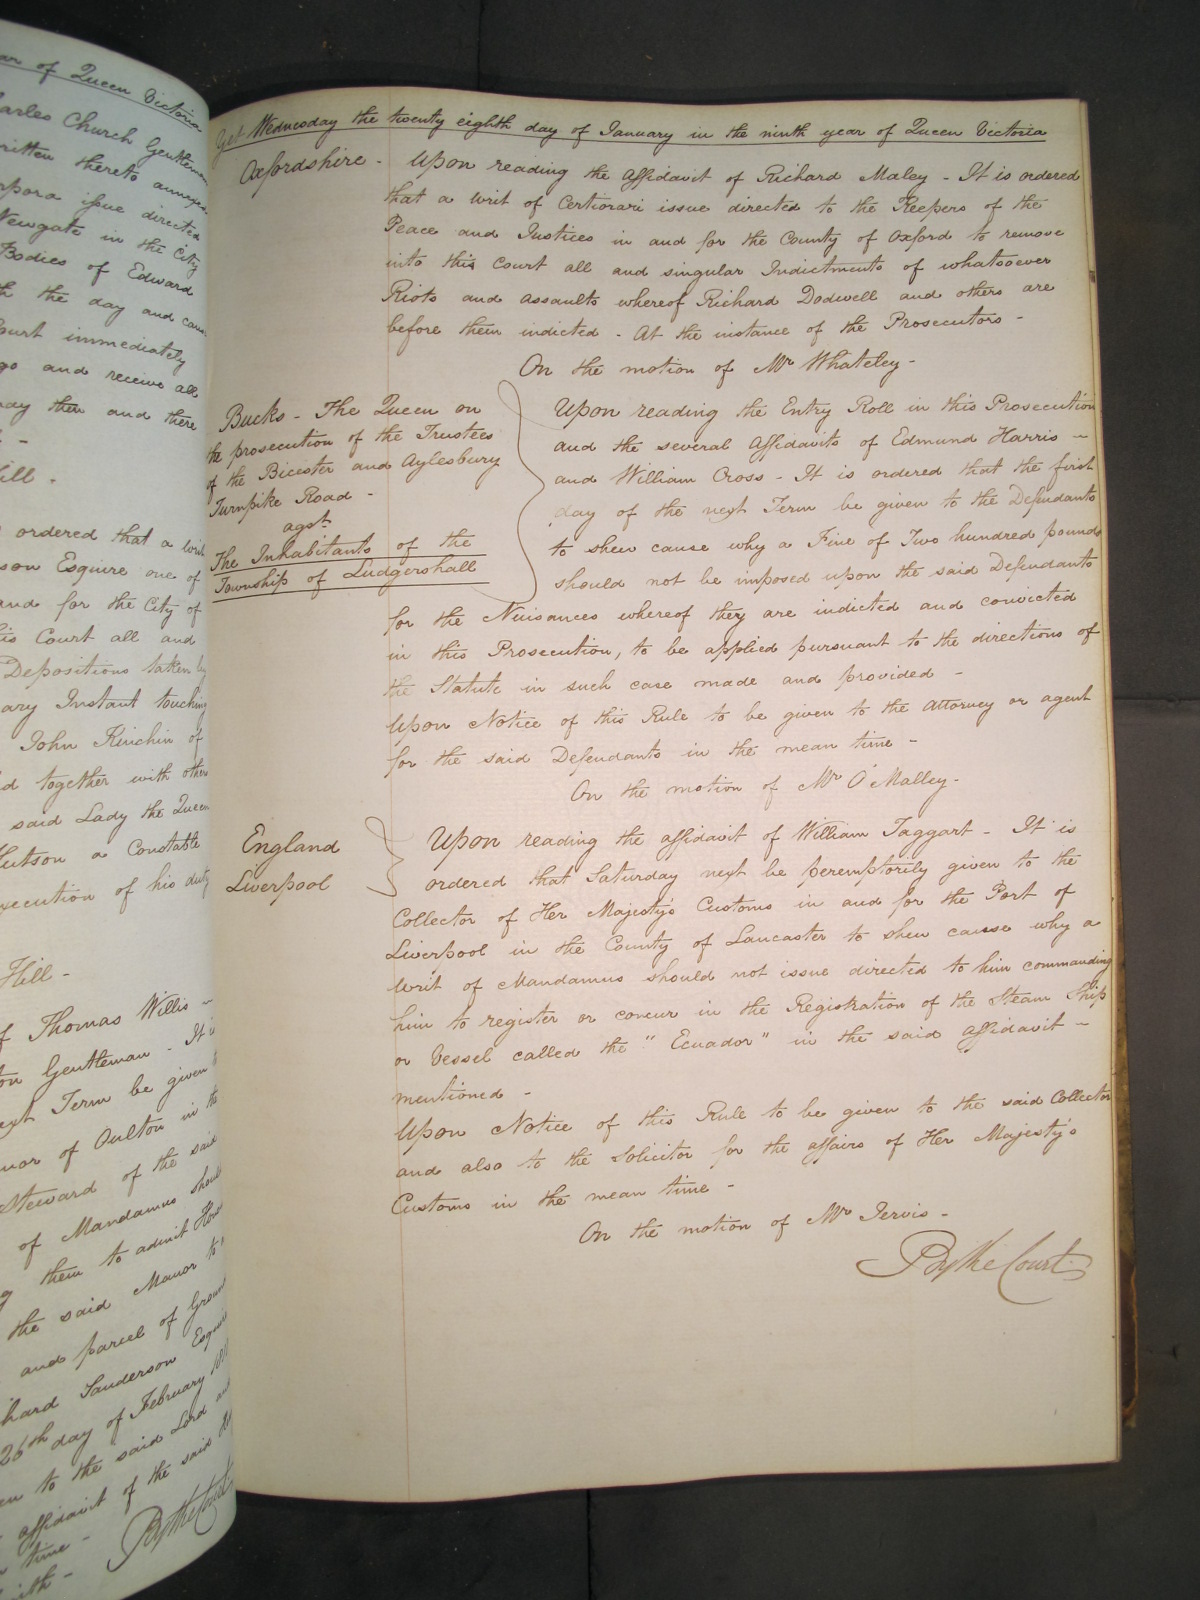 ar of Queen Victoria
harles Church Gentleman
written thereto annexed
rpora issue directed
Newgate in the City
Bodies of Edward
th the day and cause
Court immediately
go and receive all
may then and there
Hill -
ordered that a writ
son Esquire one of
and for the City of
his Court all and
Depositions taken by
ary Instant touching
John Kinchin of
d together with others
said Lady the Queen
Hutson a Constable
xecution of his duty
Hill -
of Thomas Willis -
on Gentleman - It is
ext Term be given to
nor of Oulton in the
Steward of the said
of Mandamus should
them to admit
the said Manor to
and parcel of Ground
hard Sanderson Esquire
26th day of February
to the said Lord and
affidavit of the said
time -
By the Court
Yet Wednesday the twenty eighth day of January in the ninth year of Queen Victoria
Oxfordshire - Upon reading the affidavit of Richard Maley - It is ordered
that a Writ of Certiorari issue directed to the Keepers of the
Peace and Justices in and for the County of Oxford to remove
into this Court all and singular Indictments of whatsoever
Riots and assaults whereof Richard Dodwell and others are
before them indicted - At the instance of the Prosecutors -
On the motion of Mr Whateley -
Bucks - The Queen on
the prosecution of the Trustees
of the Bicester and Aylesbury
Turnpike Road -
agst
The Inhabitants of the
Township of Ludgershall
Upon reading the Entry Roll in this Prosecution
and the several Affidavits of Edmund Harris -
and William Cross - It is ordered that the first
day of the next Term be given to the Defendants
to shew cause why a Fine of Two hundred pounds
should not be imposed upon the said Defendants
for the Nuisances whereof they are indicted and convicted
in this Prosecution, to be applied pursuant to the directions of
the Statute in such case made and provided -
Upon Notice of this Rule to be given to the Attorney or agent
for the said Defendants in the mean time -
On the motion of Mr O'Malley -
England
Liverpool
Upon reading the affidavit of William Taggart - It is
ordered that Saturday next be peremptorily given to the
Collector of Her Majesty's Customs in and for the Port of
Liverpool in the County of Lancaster to shew cause why a
Writ of Mandamus should not issue directed to him commanding
him to register or concur in the Registration of the Steam Ship
or Vessel called the "Ecuador" in the said affidavit -
mentioned -
Upon Notice of this Rule to be given to the said Collector
and also to the Solicitor for the affairs of Her Majesty's
Customs in the mean time -
On the motion of Mr Jervis -
By the Court